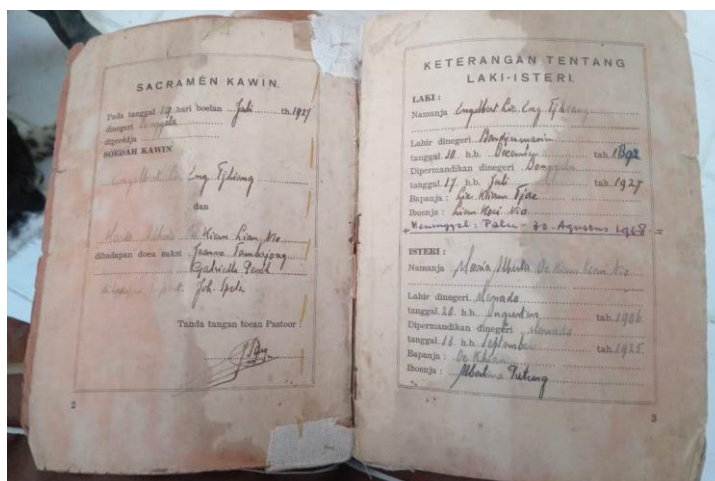 SACRAMEN KAWIN.
Pada tanggal 19 hari boelan Juli th. 1927
dinegeri Donggala
digerédja
SOEDAH KAWIN
Engelbert Lie Eng Tjhiang
dan
Maria Alberta Oe Kiam Lian Nio
dihadapan doea saksi Joanna Tambajong
Gabrielle
Joh. Spelz
Tanda tangan toean Pastoor :
2
KETERANGAN TENTANG
LAKI-ISTERI.
LAKI :
Namanja Engelbert Lie Eng Tjhiang
Lahir dinegeri Bandjermasin
tanggal 10 h.b. December tah. 1892
Dipermandikan dinegeri Donggala
tanggal 17 h.b. Juli tah. 1927
Bapanja : Lie Khiam Tjae
Iboenja : Liem Koei Nio
Meninggal : Palu - 30 - Agustus 1968 =
ISTERI :
Namanja Maria Alberta Oe Kiam Lian Nio
Lahir dinegeri Menado
tanggal 20 h.b. Augustus tah. 1906
Dipermandikan dinegeri Menado
tanggal 13 h.b. September tah. 1925
Bapanja : Oe Khian
Iboenja : Albertina
3